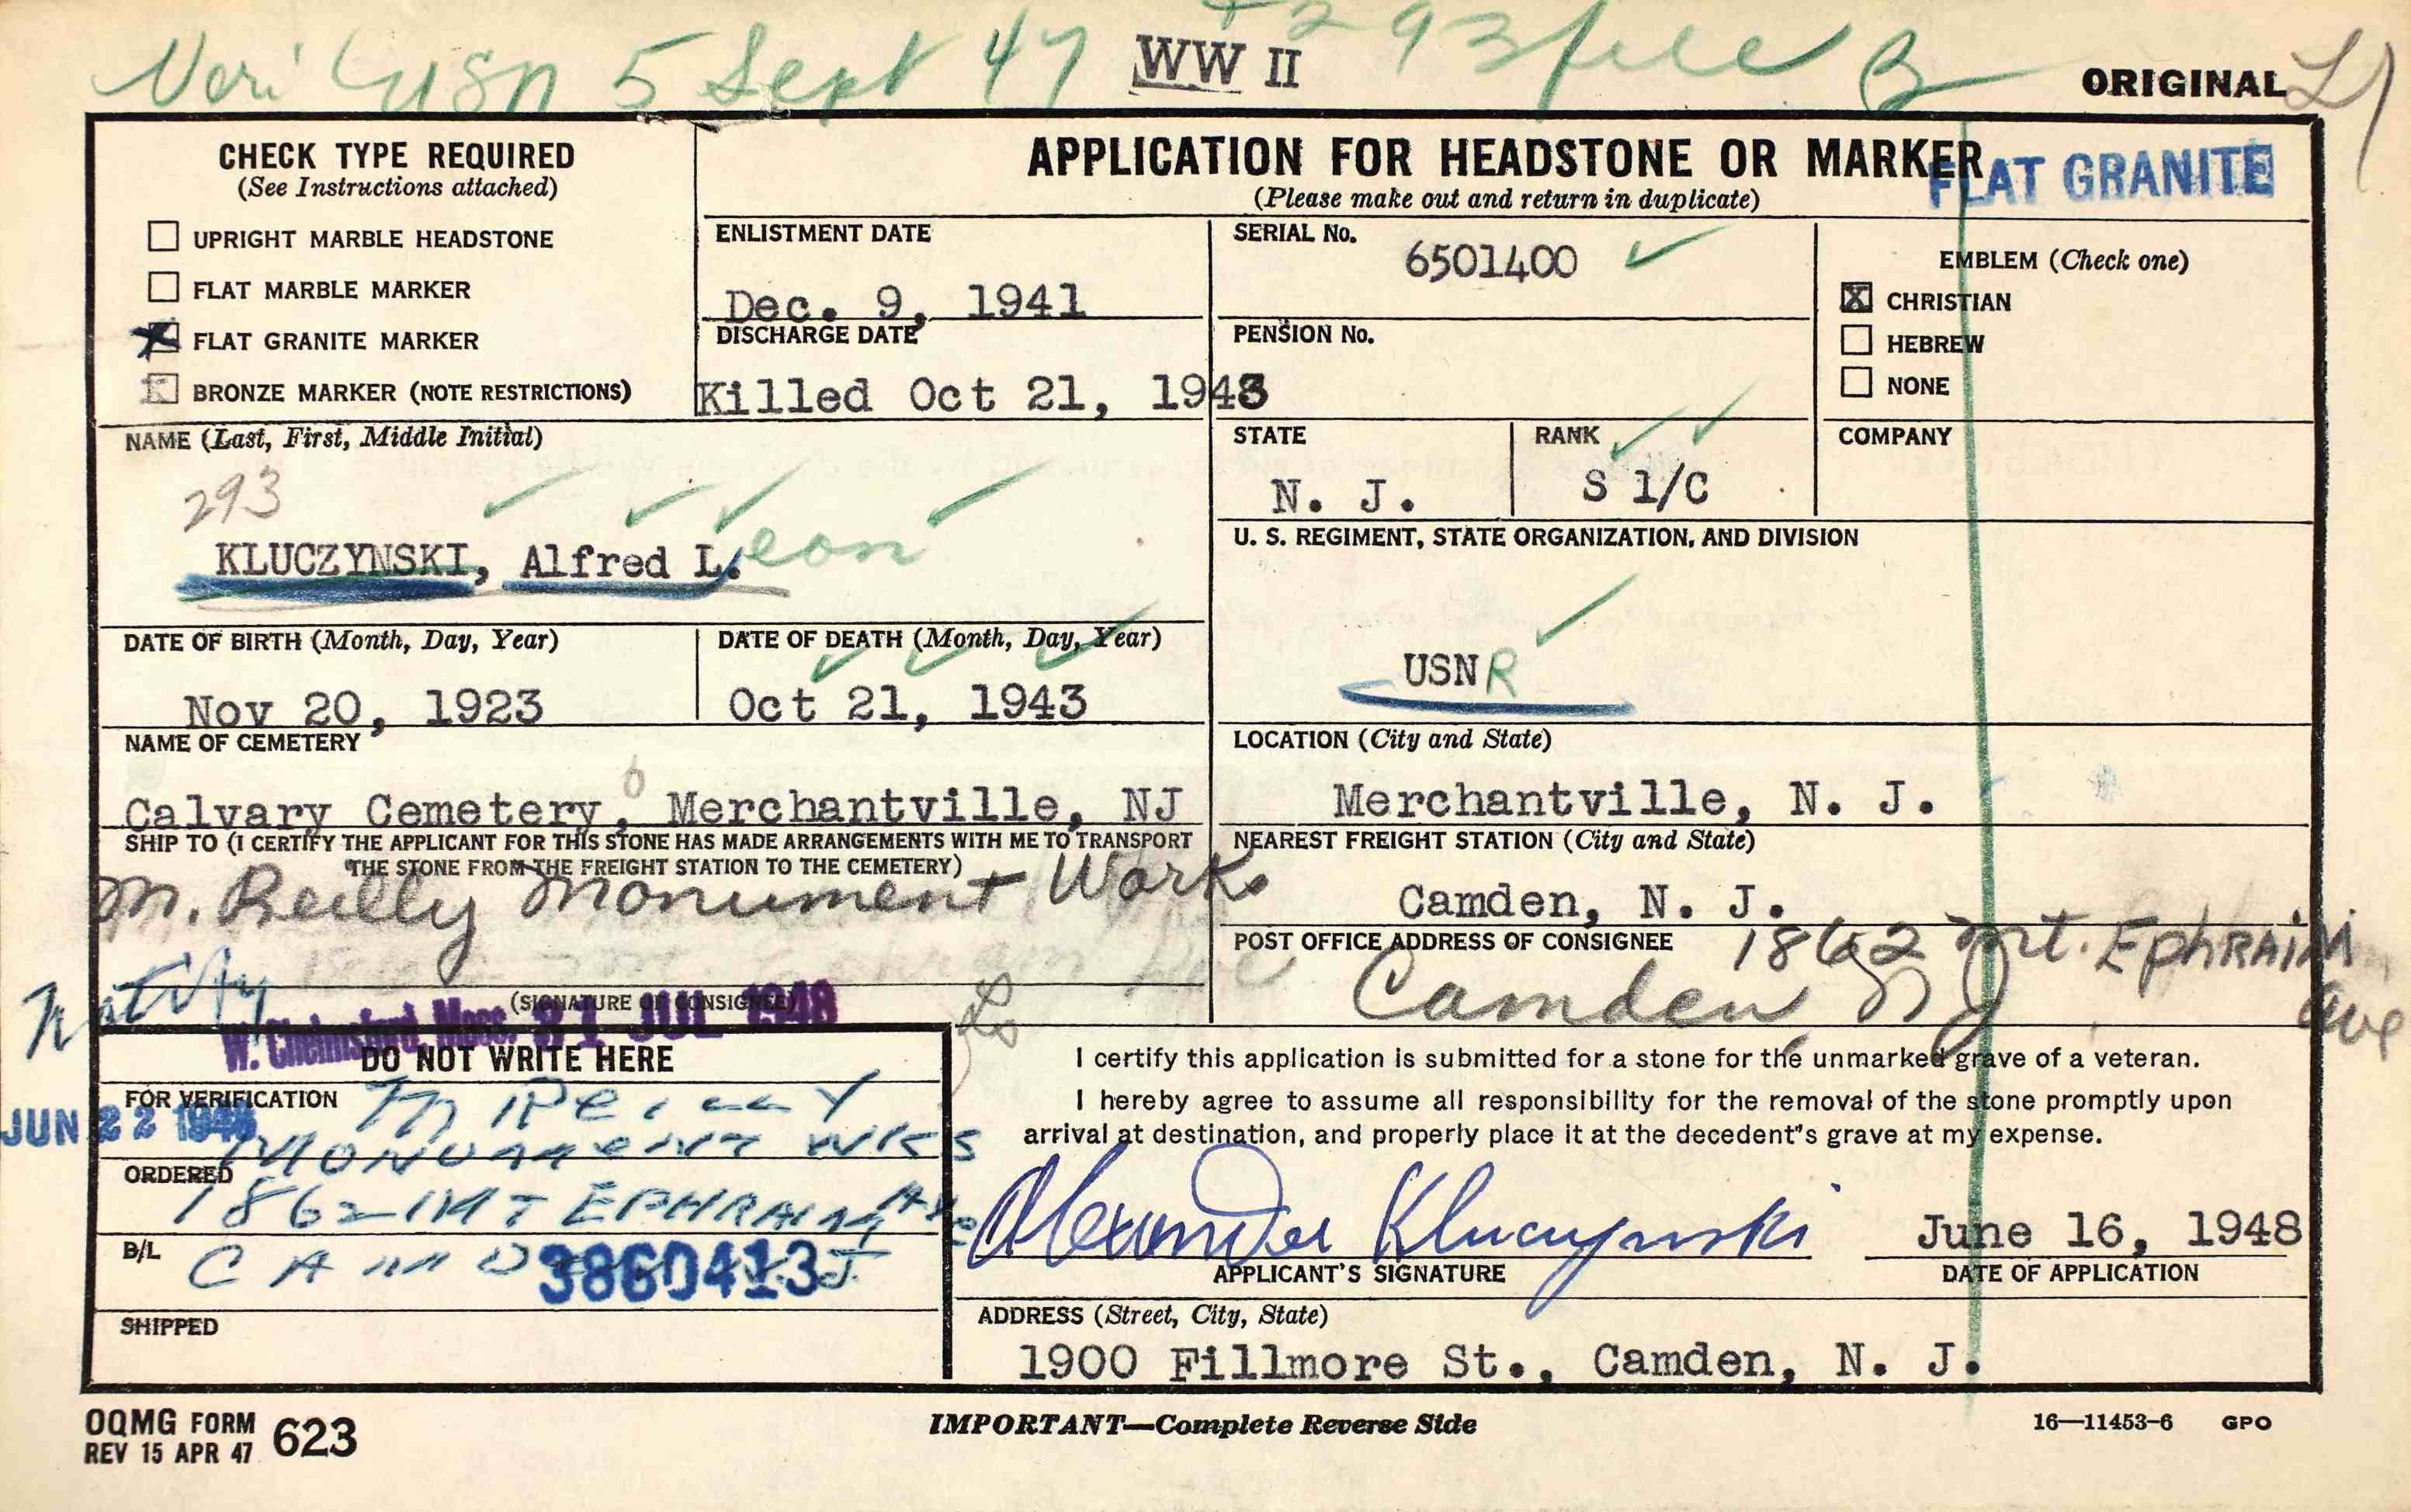 Veri USN 5 Sept 47 WW II 293 file B
ORIGINAL
CHECK TYPE REQUIRED
(See Instructions attached)
UPRIGHT MARBLE HEADSTONE
FLAT MARBLE MARKER
X FLAT GRANITE MARKER
BRONZE MARKER (NOTE RESTRICTIONS)
APPLICATION FOR HEADSTONE OR MARKER
(Please make out and return in duplicate)
FLAT GRANITE
ENLISTMENT DATE
Dec. 9, 1941
DISCHARGE DATE
Killed Oct 21, 1943
SERIAL No.
6501400
PENSION No.
EMBLEM (Check one)
X CHRISTIAN
HEBREW
NONE
NAME (Last, First, Middle Initial)
293
KLUCZYNSKI, Alfred L.eon
STATE
N. J.
RANK
S 1/C
COMPANY
U. S. REGIMENT, STATE ORGANIZATION, AND DIVISION
USNR
DATE OF BIRTH (Month, Day, Year)
Nov 20, 1923
DATE OF DEATH (Month, Day, Year)
Oct 21, 1943
NAME OF CEMETERY
Calvary Cemetery, Merchantville, NJ
LOCATION (City and State)
Merchantville, N. J.
SHIP TO (I CERTIFY THE APPLICANT FOR THIS STONE HAS MADE ARRANGEMENTS WITH ME TO TRANSPORT
THE STONE FROM THE FREIGHT STATION TO THE CEMETERY)
M. Reilly Monument Works
NEAREST FREIGHT STATION (City and State)
Camden, N. J.
POST OFFICE ADDRESS OF CONSIGNEE
1862 Mt. Ephraim Ave
Camden NJ
Notify
(SIGNATURE OF CONSIGNEE)
W. Chelmsford, Mass. 31 JUL 1948
DO NOT WRITE HERE
FOR VERIFICATION
JUN 22 1948
M REILLY
MONUMENT WKS
ORDERED
1862 MT EPHRAIM AVE
B/L
3860413
SHIPPED
I certify this application is submitted for a stone for the unmarked grave of a veteran.
I hereby agree to assume all responsibility for the removal of the stone promptly upon
arrival at destination, and properly place it at the decedent's grave at my expense.
Alexander Kluczynski
APPLICANT'S SIGNATURE
June 16, 1948
DATE OF APPLICATION
ADDRESS (Street, City, State)
1900 Fillmore St., Camden, N. J.
OQMG FORM 623
REV 15 APR 47
IMPORTANT—Complete Reverse Side
16—11453-6 GPO